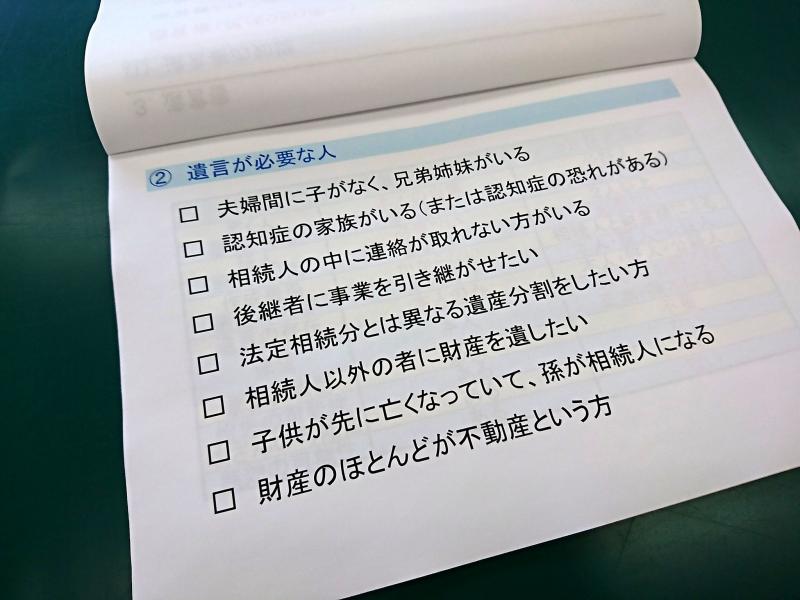 ② 遺言が必要な人
□ 夫婦間に子がなく、兄弟姉妹がいる
□ 認知症の家族がいる(または認知症の恐れがある)
□ 相続人の中に連絡が取れない方がいる
□ 後継者に事業を引き継がせたい
□ 法定相続分とは異なる遺産分割をしたい方
□ 相続人以外の者に財産を遺したい
□ 子供が先に亡くなっていて、孫が相続人になる
□ 財産のほとんどが不動産という方